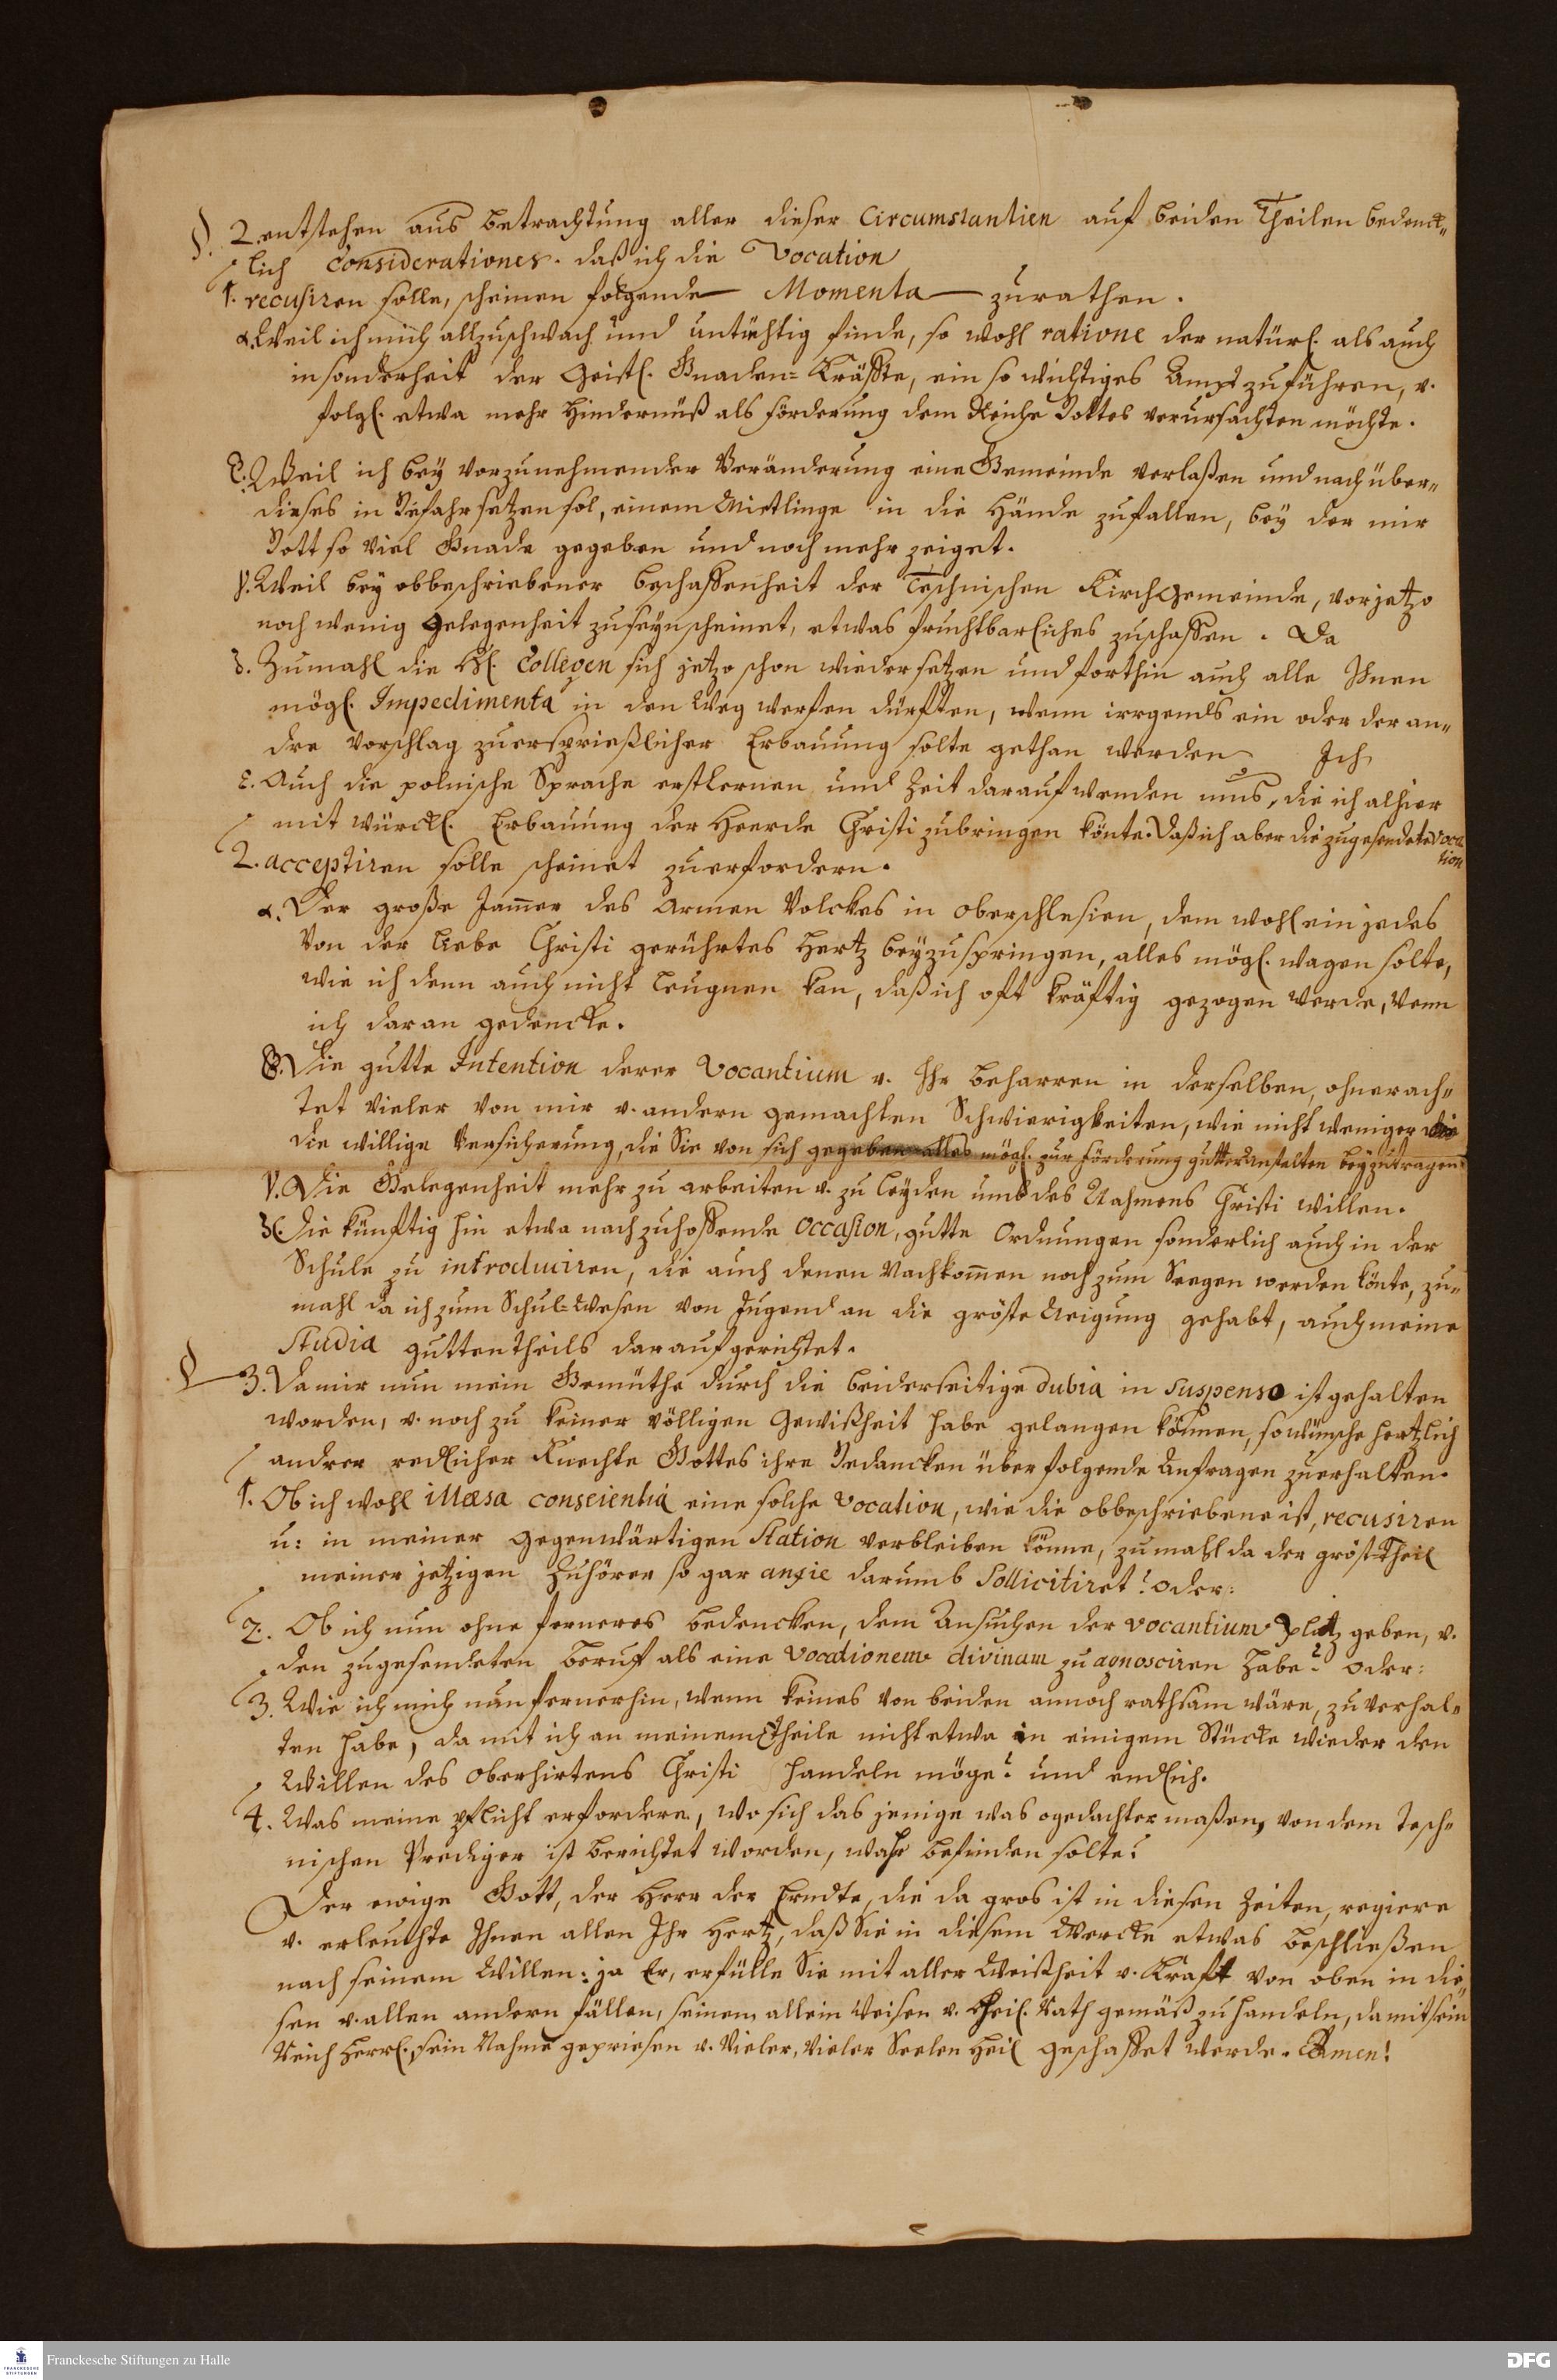 §. 2. entstehen aus Betrachtung aller dieser Circumstantien auf beiden Theilen bedenck-
lich Considerationes. daß ich die Vocation
1. recusiren solle, scheinen folgende Momenta zurathen.
α. Weil ich mich allzuschwach und untüchtig finde, so wohl ratione der natürl. als auch
insonderheit der Geistl. Gnaden-Kräffte, ein so wichtiges Ampt zuführen, v.
folgl. etwa mehr Hindernüß als förderung dem Reiche Gottes verursachten möchte.
β. Weil ich bey vorzunehmender Veränderung eine Gemeinde verlaßen und nach über-
dieses in Gefahr setzen sol, einem Mietlinge in die Hände zufallen, bey der mir
Gott so viel Gnade gegeben und noch mehr zeiget.
γ. Weil bey obbeschriebener beschaffenheit der Teschnischen KirchGemeinde, vorjetzo
noch wenig gelegenheit zuseyn scheinet, etwas fruchtbarliches zuschaffen. Da
δ. Zumahl die H. Collegen sich jetzo schon wiedersetzen und forthin auch alle Ihnen
mögl. Impedimenta in den Weg werfen dürfften, wenn irrgends ein oder der an-
dre Vorschlag zuersprießlicher Erbauung solte gethan werden. Ich
ε. Auch die polnische Sprache erstlernen und Zeit darauf wenden mus, die ich alhier
mit würckl. Erbauung der Heerde Christi zubringen könte. Daß ich aber die zugesendete Voca
tion
2. acceptiren solle scheinet zuerfordern.
α. Der große Jam̃er des Armen Volckes in Oberschlesien, dem wohl ein jedes
von der Liebe Christi gerührtes Hertz beyzuspringen, alles mögl. wagen solte,
wie ich denn auch nicht leugnen kan, daß ich oft kräftig gezogen werde, wenn
ich daran gedencke.
β. Die gutte Intention derer Vocantium v. Ihr beharren in derselben, ohnerach-
tet vieler von mir v. andern gemachten Schwierigkeiten, wie nicht weniger
die willige Versicherung, die Sie von sich gegeben alles mögl. zur förderung gutter Anstalten beyzutragen.
γ. Die Gelegenheit mehr zu arbeiten v. zu leyden umb des Nahmens Christi willen.
δ. Die künftig hin etwa nach zuhoffende occasion, gutte Ordnungen sonderlich auch in der
Schule zu introduciren, die auch denen Nachkom̃en noch zum Seegen werden könte, zu-
mahl da ich zum Schul-Wesen von Jugend an die gröste Neigung gehabt, auch meine
Studia guttentheils darauf gerichtet.
§ 3. Da mir nun mein Gemüthe durch die beiderseitige dubia in suspenso ist gehalten
worden, v. noch zu keiner völligen Gewißheit habe gelangen können, so wünsche hertzlich
andrer redlicher Knechte Gottes ihre Gedancken über folgende Anfragen zuerhalten.
1. Ob ich wohl illæsa conscientia eine solche Vocation, wie die obbeschriebene ist, recusiren
u: in meiner gegenwärtigen Station verbleiben könne, zumahl da der gröst-Theil
meiner jetzigen Zuhörer so gar anxie darumb sollicitiret? oder:
2. Ob ich nun ohne ferneres bedencken, dem Ansuchen der vocantium platz geben, v.
den zugesendeten beruf als eine Vocationem divinam zu agnosciren habe? oder:
3. Wie ich mich nun fernerhin, wenn keines von beiden annoch rathsam wäre, zu verhal-
ten habe, damit ich an meinem theile nicht etwa in einigem Stücke wieder den
Willen des Oberhirtens Christi handeln möge? und endlich.
4. Was meine pflicht erfordere, wo sich das jenige was ogedachter maßen, von dem Tesch-
nischen Prediger ist berichtet worden, wahr befinden solte?
Der ewige Gott, der Herr der Erndte, die da gros ist in diesen Zeiten, regiere
v. erleuchte Ihnen allen Ihr Hertz, daß Sie in diesem Wercke etwas beschließen
nach seinem Willen: ja Er, erfülle Sie mit aller Weißheit v. Kraft von oben in die-
sen v. allen andern fällen, seinem allein weisen v. heil. Rath gemäß zu handeln, damit sein
Reich Herrl., sein Nahme gepriesen v. vieler, vieler Seelen Heil geschaffet werde. Amen!
Franckesche Stiftungen zu Halle
DFG